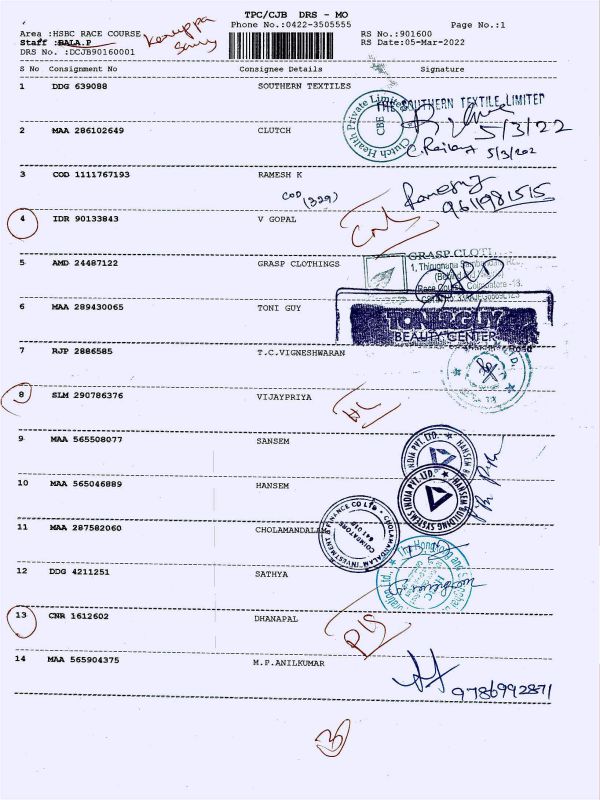 TPC/CJB DRS - MO
Phone No.:0422-3505555 Page No.:1
Area :HSBC RACE COURSE RS No.:901600
Staff :BALA.P RS Date:05-Mar-2022
DRS No. :DCJB90160001
S No Consignment No Consignee Details Signature
1 DDG 639088 SOUTHERN TEXTILES
THE SOUTHERN TEXTILE LIMITED
5/3/22
2 MAA 286102649 CLUTCH
Clutch Health Private Limited
CBE
5/3/202
3 COD 1111767193 RAMESH K
COD (329)
Ramesh
9611981515
4 IDR 90133843 V GOPAL
5 AMD 24487122 GRASP CLOTHINGS
6 MAA 289430065 TONI GUY
TONI&GUY
BEAUTY CENTER
7 RJP 2886585 T.C.VIGNESHWARAN
8 SLM 290786376 VIJAYPRIYA
9 MAA 565508077 SANSEM
10 MAA 565046889 HANSEM
HANSEM BUILDING SYSTEMS INDIA PVT. LTD.
11 MAA 287582060 CHOLAMANDALAM
CHOLAMANDALAM INVESTMENT & FINANCE CO LTD
COIMBATORE
641 018
12 DDG 4211251 SATHYA
13 CNR 1612602 DHANAPAL
14 MAA 565904375 M.P.ANILKUMAR
9786992871